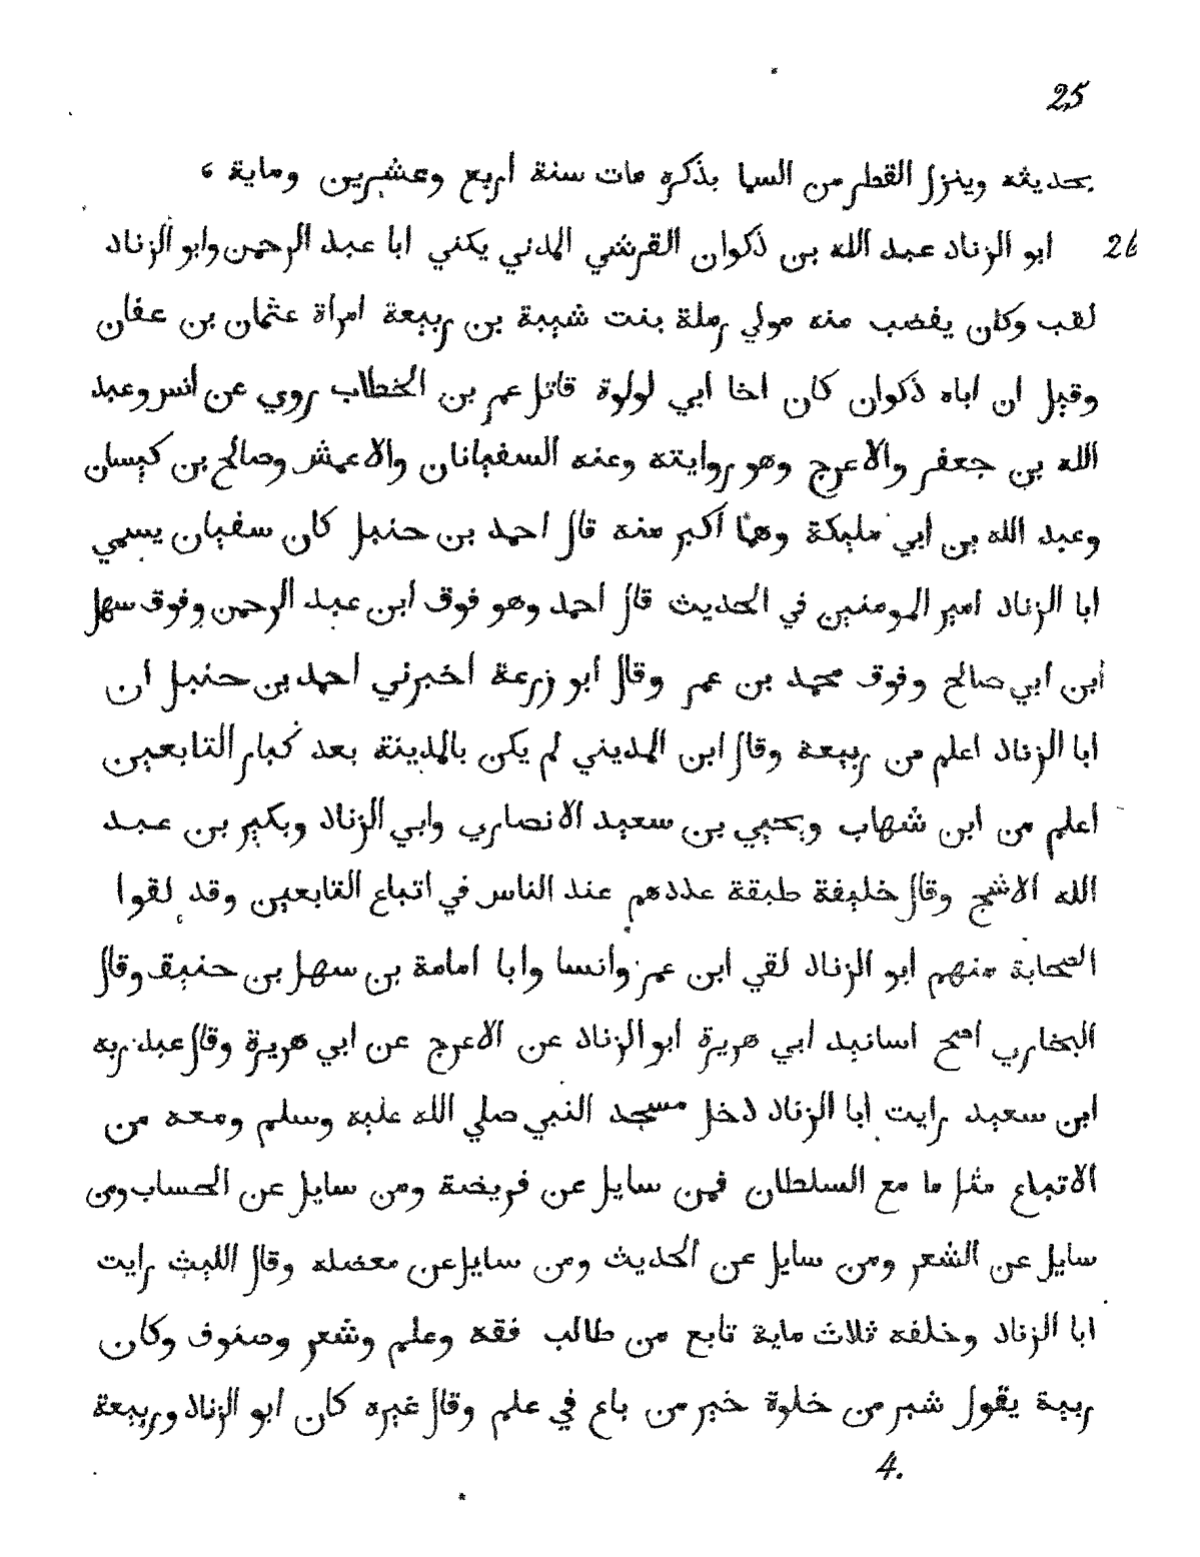 25
بحديثه وينزل القطر من السما بذكره مات سنة أربع وعشرين وماية ،
26 ابو الزناد عبد الله بن ذكوان القرشي المدني يكني ابا عبد الرحمن وابو الزناد
لقب وكان يغضب منه مولي رملة بنت شيبة بن ربيعة امراة عثمان بن عفان
وقيل ان اباه ذكوان كان اخا ابي لولوة قاتل عمر بن الخطاب روي عن أنس وعبد
الله بن جعفر والاعرج وهو روايته وعنه السفيانان والاعمش وصالح بن كيسان
وعبد الله بن أبي مليكة وهما أكبر منه قال احمد بن حنبل كان سفيان يسمي
ابا الزناد امير المومنين في الحديث قال احمد وهو فوق ابن عبد الرحمن وفوق سهل
أبن ابي صالح وفوق محمد بن عمر وقال ابو زرعة اخبرني احمد بن حنبل ان
ابا الزناد اعلم من ربيعة وقال ابن المديني لم يكن بالمدينة بعد كبار التابعين
اعلم من ابن شهاب ويحيي بن سعيد الانصاري وابي الزناد وبكير بن عبد
الله الاشج وقال خليفة طبقة عددهم عند الناس في اتباع التابعين وقد لقوا
الصحابة منهم ابو الزناد لقي ابن عمر وانسا وابا امامة بن سهل بن حنيف وقال
البخاري اصح اسانيد ابي هريرة ابو الزناد عن الاعرج عن ابي هريرة وقال عبد ربه
ابن سعيد رايت ابا الزناد دخل مسجد النبي صلي الله عليه وسلم ومعه من
الاتباع مثل ما مع السلطان فمن سايل عن فريضة ومن سايل عن الحساب ومن
سايل عن الشعر ومن سايل عن الحديث ومن سايل عن معضله وقال الليث رايت
ابا الزناد وخلفه ثلاث ماية تابع من طالب فقه وعلم وشعر وصنوف وكان
ربيعة يقول شبر من خلوة خير من باع في علم وقال غيره كان ابو الزناد وربيعة
4.